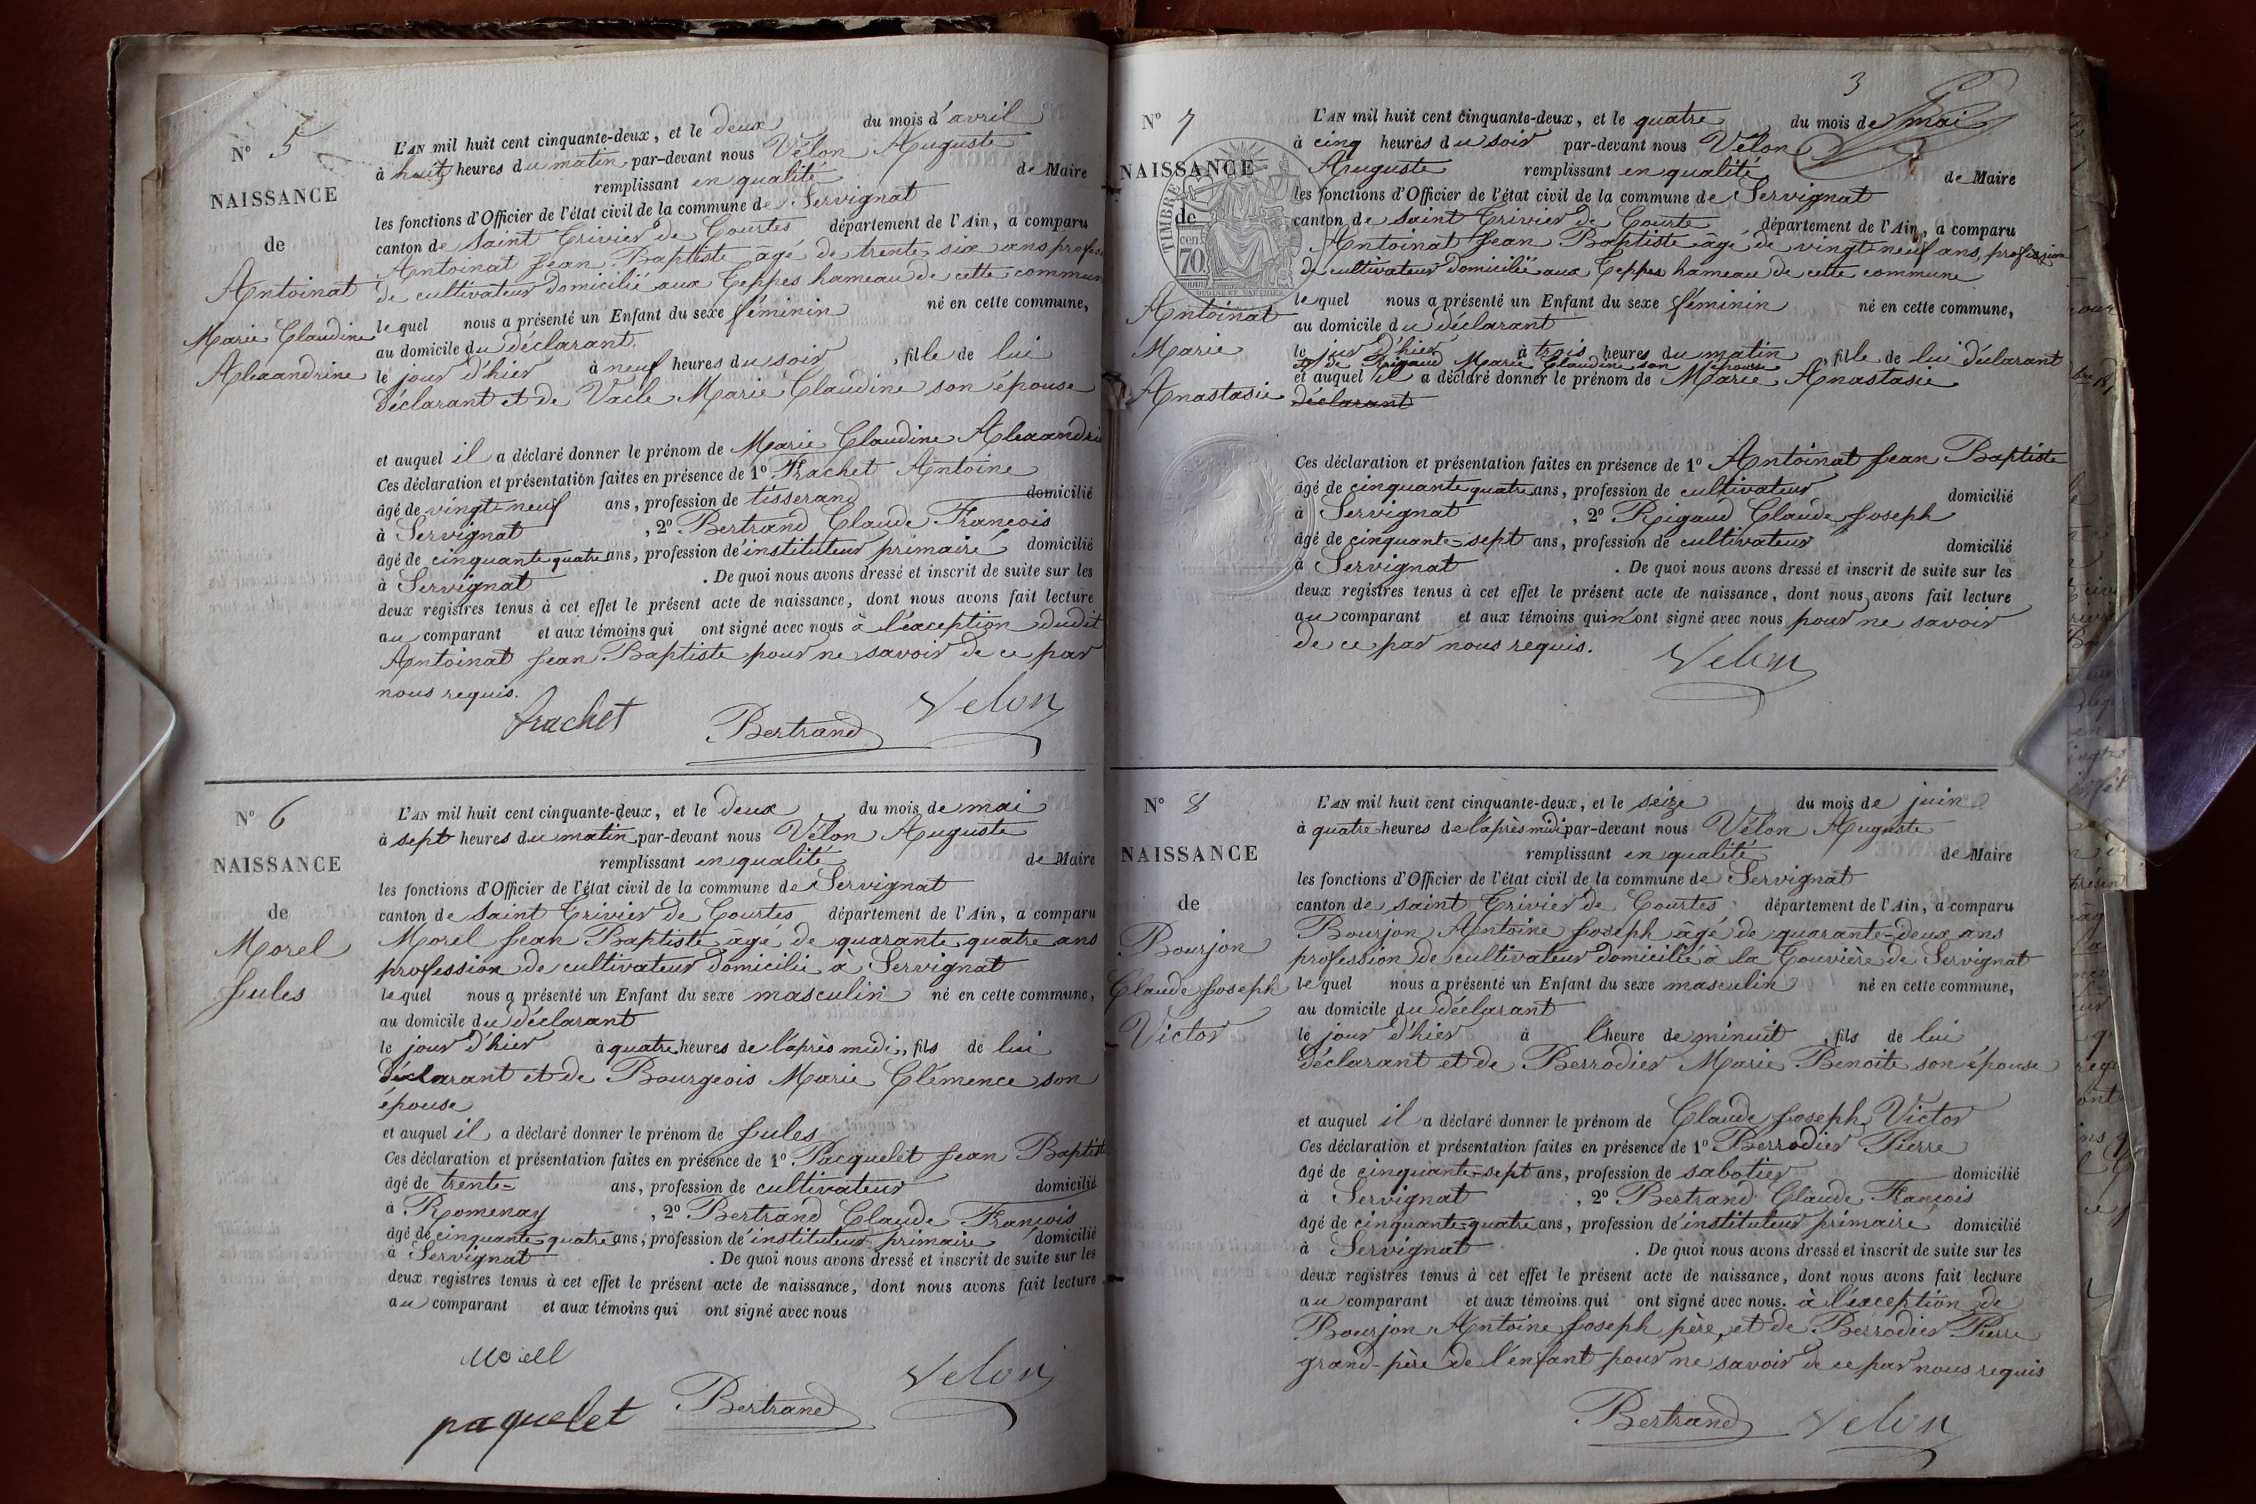 N° 5
NAISSANCE
de
Antoinat
Marie Claudine
Alexandrine
L'AN mil huit cent cinquante-deux, et le deux du mois d'avril
à huit heures du matin par-devant nous Vélon Auguste
remplissant en qualité de Maire
les fonctions d'Officier de l'état civil de la commune de Servignat
canton de Saint Trivier de Courtes département de l'Ain, a comparu
Antoinat Jean Baptiste âgé de trente six ans profes
de cultivateur domicilié aux Teppes hameau de cette commun
lequel nous a présenté un Enfant du sexe féminin né en cette commune,
au domicile du déclarant.
le jour d'hier à neuf heures du soir, fille de lui
déclarant et de Vacle Marie Claudine son épouse
et auquel il a déclaré donner le prénom de Marie Claudine Alexandri
Ces déclaration et présentation faites en présence de 1° Frachet Antoine
âgé de vingt-neuf ans, profession de tisserand domicilié
à Servignat, 2° Bertrand Claude François
âgé de cinquante quatre ans, profession de instituteur primaire domicilié
à Servignat. De quoi nous avons dressé et inscrit de suite sur les
deux registres tenus à cet effet le présent acte de naissance, dont nous avons fait lecture
au comparant et aux témoins qui ont signé avec nous à l'exception dudit
Antoinat Jean Baptiste pour ne savoir de ce par
nous requis.
frachet Bertrand Velon
N° 6
NAISSANCE
de
Morel
Jules
L'AN mil huit cent cinquante-deux, et le deux du mois de mai
à sept heures du matin par-devant nous Vélon Auguste
remplissant en qualité de Maire
les fonctions d'Officier de l'état civil de la commune de Servignat
canton de Saint Trivier de Courtes département de l'Ain, a comparu
Morel Jean Baptiste âgé de quarante quatre ans
profession de cultivateur domicilié à Servignat
lequel nous a présenté un Enfant du sexe masculin né en cette commune,
au domicile du déclarant
le jour d'hier à quatre heures de l'après midi, fils de lui
déclarant et de Bourgeois Marie Clémence son
épouse
et auquel il a déclaré donner le prénom de Jules
Ces déclaration et présentation faites en présence de 1° Pacquelet Jean Baptist
âgé de trente= ans, profession de cultivateur domicilié
à Romenay, 2° Bertrand Claude François
âgé de cinquante quatre ans, profession de instituteur primaire domicilié
à Servignat. De quoi nous avons dressé et inscrit de suite sur les
deux registres tenus à cet effet le présent acte de naissance, dont nous avons fait lecture
au comparant et aux témoins qui ont signé avec nous
paquelet Bertrand Velon
3
N° 7
NAISSANCE
de
TIMBRE
70
Antoinat
Marie
Anastasie
L'AN mil huit cent cinquante-deux, et le quatre du mois de mai
à cinq heures du soir par-devant nous Vélon
Auguste remplissant en qualité de Maire
les fonctions d'Officier de l'état civil de la commune de Servignat
canton de Saint Trivier de Courte département de l'Ain, a comparu
Antoinat Jean Baptiste âgé de vingt-neuf ans, profession
de cultivateur domicilié aux Teppes hameau de cette commune
lequel nous a présenté un Enfant du sexe féminin né en cette commune,
au domicile du déclarant
le jour d'hier à trois heures du matin, fille de lui déclarant
et de Rigaud Marie Claudine son épouse
et auquel il a déclaré donner le prénom de Marie Anastasie
déclarant
Ces déclaration et présentation faites en présence de 1° Antoinat Jean Baptiste
âgé de cinquante quatre ans, profession de cultivateur domicilié
à Servignat, 2° Rigaud Claude Joseph
âgé de cinquante-sept ans, profession de cultivateur domicilié
à Servignat. De quoi nous avons dressé et inscrit de suite sur les
deux registres tenus à cet effet le présent acte de naissance, dont nous avons fait lecture
au comparant et aux témoins qui n'ont signé avec nous pour ne savoir
de ce par nous requis.
Velon
N° 8
NAISSANCE
de
Bourjon
Claude Joseph
Victor
L'AN mil huit cent cinquante-deux, et le seize du mois de juin
à quatre heures de l'après midi par-devant nous Vélon Auguste
remplissant en qualité de Maire
les fonctions d'Officier de l'état civil de la commune de Servignat
canton de Saint Trivier de Courtes département de l'Ain, a comparu
Bourjon Antoine Joseph âgé de quarante-deux ans
profession de cultivateur domicilié à la Touvière de Servignat
lequel nous a présenté un Enfant du sexe masculin né en cette commune,
au domicile du déclarant
le jour d'hier à l'heure de minuit, fils de lui
déclarant et de Berrodier Marie Benoite son épouse
et auquel il a déclaré donner le prénom de Claude Joseph Victor
Ces déclaration et présentation faites en présence de 1° Berrodier Pierre
âgé de cinquante-sept ans, profession de sabotier domicilié
à Servignat, 2° Bertrand Claude François
âgé de cinquante-quatre ans, profession de instituteur primaire domicilié
à Servignat. De quoi nous avons dressé et inscrit de suite sur les
deux registres tenus à cet effet le présent acte de naissance, dont nous avons fait lecture
au comparant et aux témoins qui ont signé avec nous. à l'exception de
Bourjon Antoine Joseph père, et de Berrodier Pierre
grand-père de l'enfant pour ne savoir de ce par nous requis
Bertrand Velon